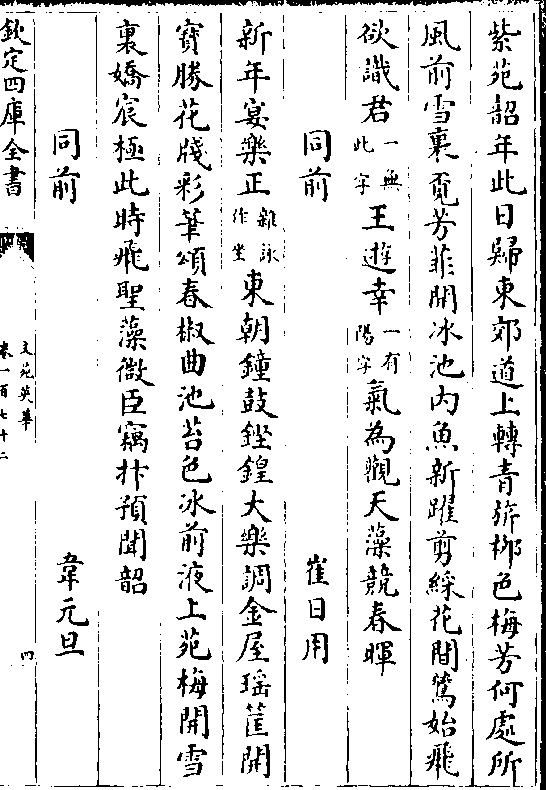 紫苑韶年此日歸東郊道上轉青旂桞色梅芳何處所
風前雪裏覓芳菲開冰池内魚新躍剪綵花間鶯始飛
欲識君一無此字王遊幸一有陽字氣為觀天藻競春暉
同前 崔日用
新年宴樂正雜詠作坐東朝鐘鼓鏗鍠大樂調金屋瑶筐開
寶勝花牋彩筆頌春椒曲池苔色冰前液上苑梅開雪
裏嬌宸極此時飛聖藻微臣竊抃預聞韶
同前 韋元旦
欽定四庫全書
文苑英華
卷一百七十二
四